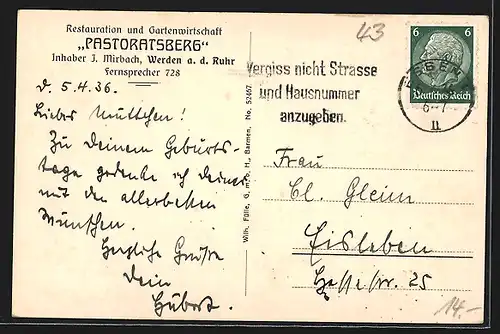 Restauration und Gartenwirtschaft
„PASTORATSBERG“
Inhaber J. Mirbach, Werden a. d. Ruhr
Fernsprecher 728
d. 5.4.36.
Liebes Muttchen!
Zu Deinem Geburts-
tage gedenke ich Deiner
mit den allerbesten
Wünschen.
Herzliche Grüße
Dein
Hubert.
Wilh. Fülle, G. m. b. H., Barmen, No. 52467
43
Vergiss nicht Strasse
und Hausnummer
anzugeben.
6 6
Deutsches Reich
ESSEN
6-7
11
Frau
Cl. Gleim
Eisleben
str. 25
14.-